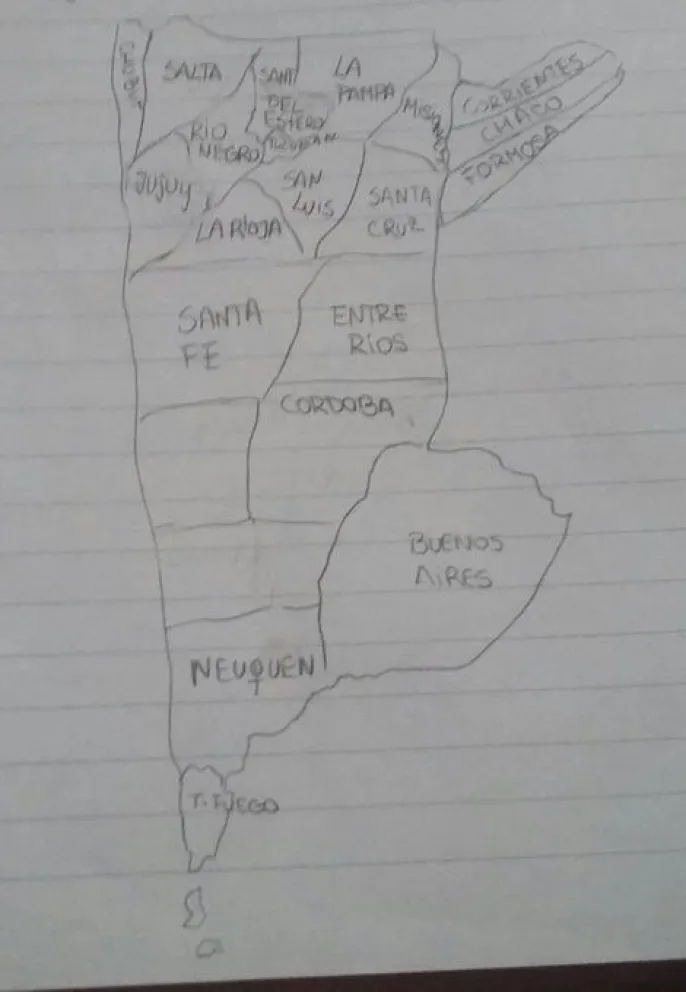 CHUBUT
SALTA
SANT
DEL
ESTERO
TUCUMAN
LA
PAMPA
MISIONES
CORRIENTES
CHACO
FORMOSA
RIO
NEGRO
JUJUY
SAN
LUIS
LA RIOJA
SANTA
CRUZ
SANTA
FE
ENTRE
RÍOS
CORDOBA
BUENOS
AIRES
NEUQUEN
T. FUEGO